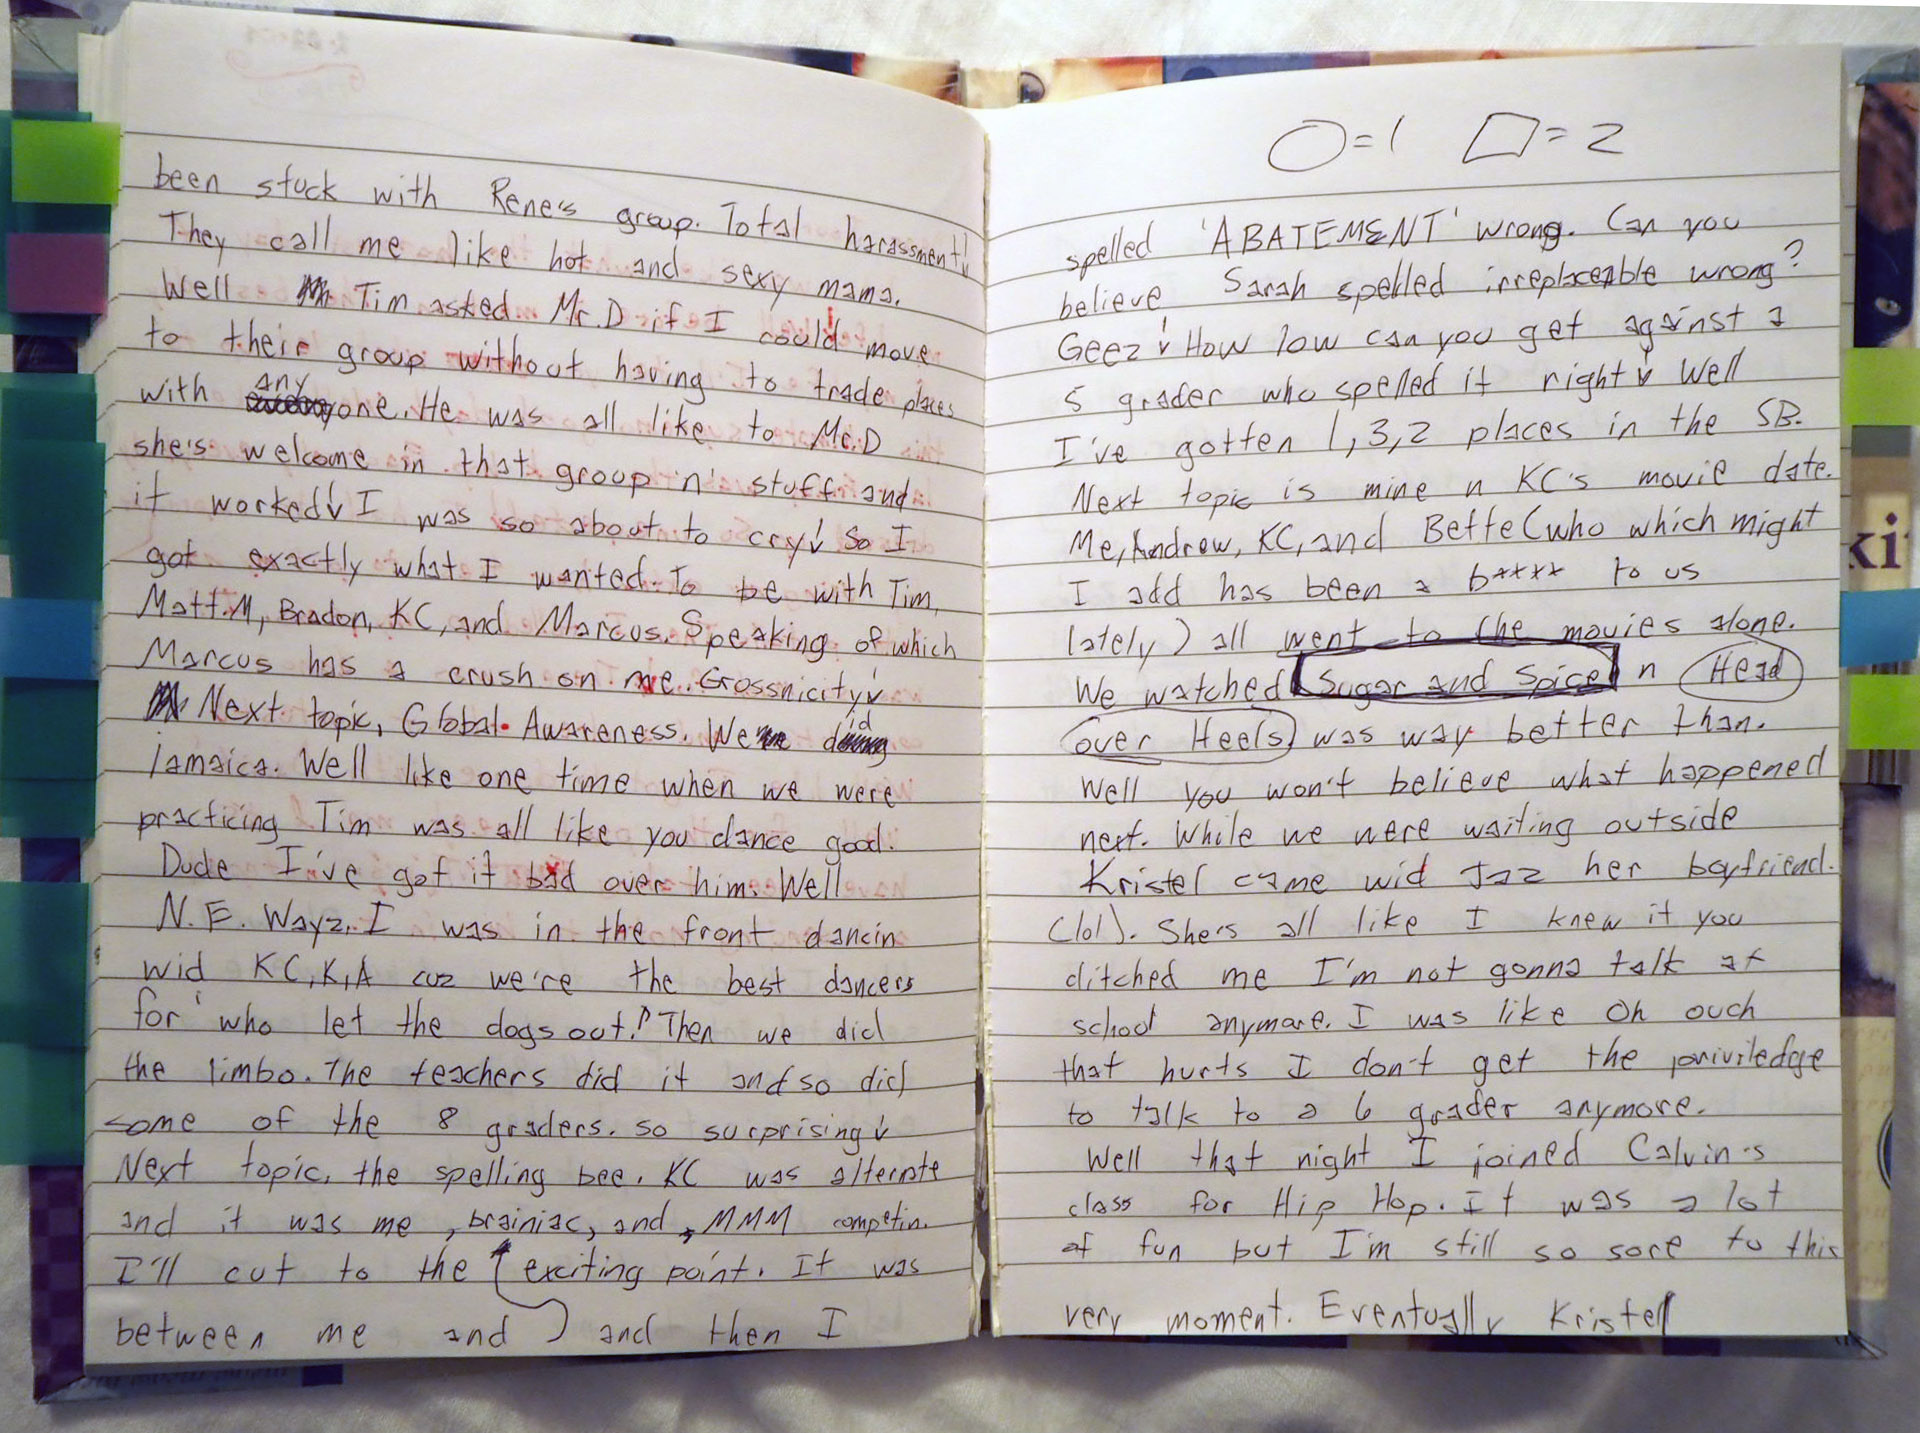 been stuck with Rene's group. Total harassment!
They call me like hot and sexy mama.
Well Tim asked Mr. D if I could move
to their group without having to trade places
with anyone. He was all like to Mr. D
she's welcome in that group 'n' stuff and
it worked! I was so about to cry! So I
got exactly what I wanted. To be with Tim,
Matt.M, Bradon, KC, and Marcus. Speaking of which
Marcus has a crush on me. Grossnicity!
Next topic, Global Awareness. We did
jamaica. Well like one time when we were
practicing Tim was all like you dance good.
Dude I've got it bad over him. Well
N.E. Wayz. I was in the front dancin
wid KC, K, A cuz we're the best dancers
for 'who let the dogs out!' Then we did
the limbo. The teachers did it and so did
some of the 8 graders. so surprising!
Next topic. the spelling bee. KC was alternate
and it was me, brainiac, and, MMM competin.
I'll cut to the exciting point. It was
between me and and then I
○=1 □=2
spelled 'ABATEMENT' wrong. Can you
believe Sarah spelled irreplaceable wrong?
Geez! How low can you get against a
5 grader who spelled it right! Well
I've gotten 1,3,2 places in the SB.
Next topic is mine n KC's movie date.
Me, Andrew, KC, and Bette (who which might
I add has been a b**** to us
lately) all went to the movies alone.
We watched Sugar and Spice n Head
over Heels was way better than.
Well you won't believe what happened
next. While we were waiting outside
Kristel came wid Jaz her boyfriend.
(lol). She's all like I knew it you
ditched me I'm not gonna talk at
school anymore. I was like Oh ouch
that hurts I don't get the priviledge
to talk to a 6 grader anymore.
Well that night I joined Calvin's
class for Hip Hop. It was a lot
of fun but I'm still so sore to this
very moment. Eventually Kristel